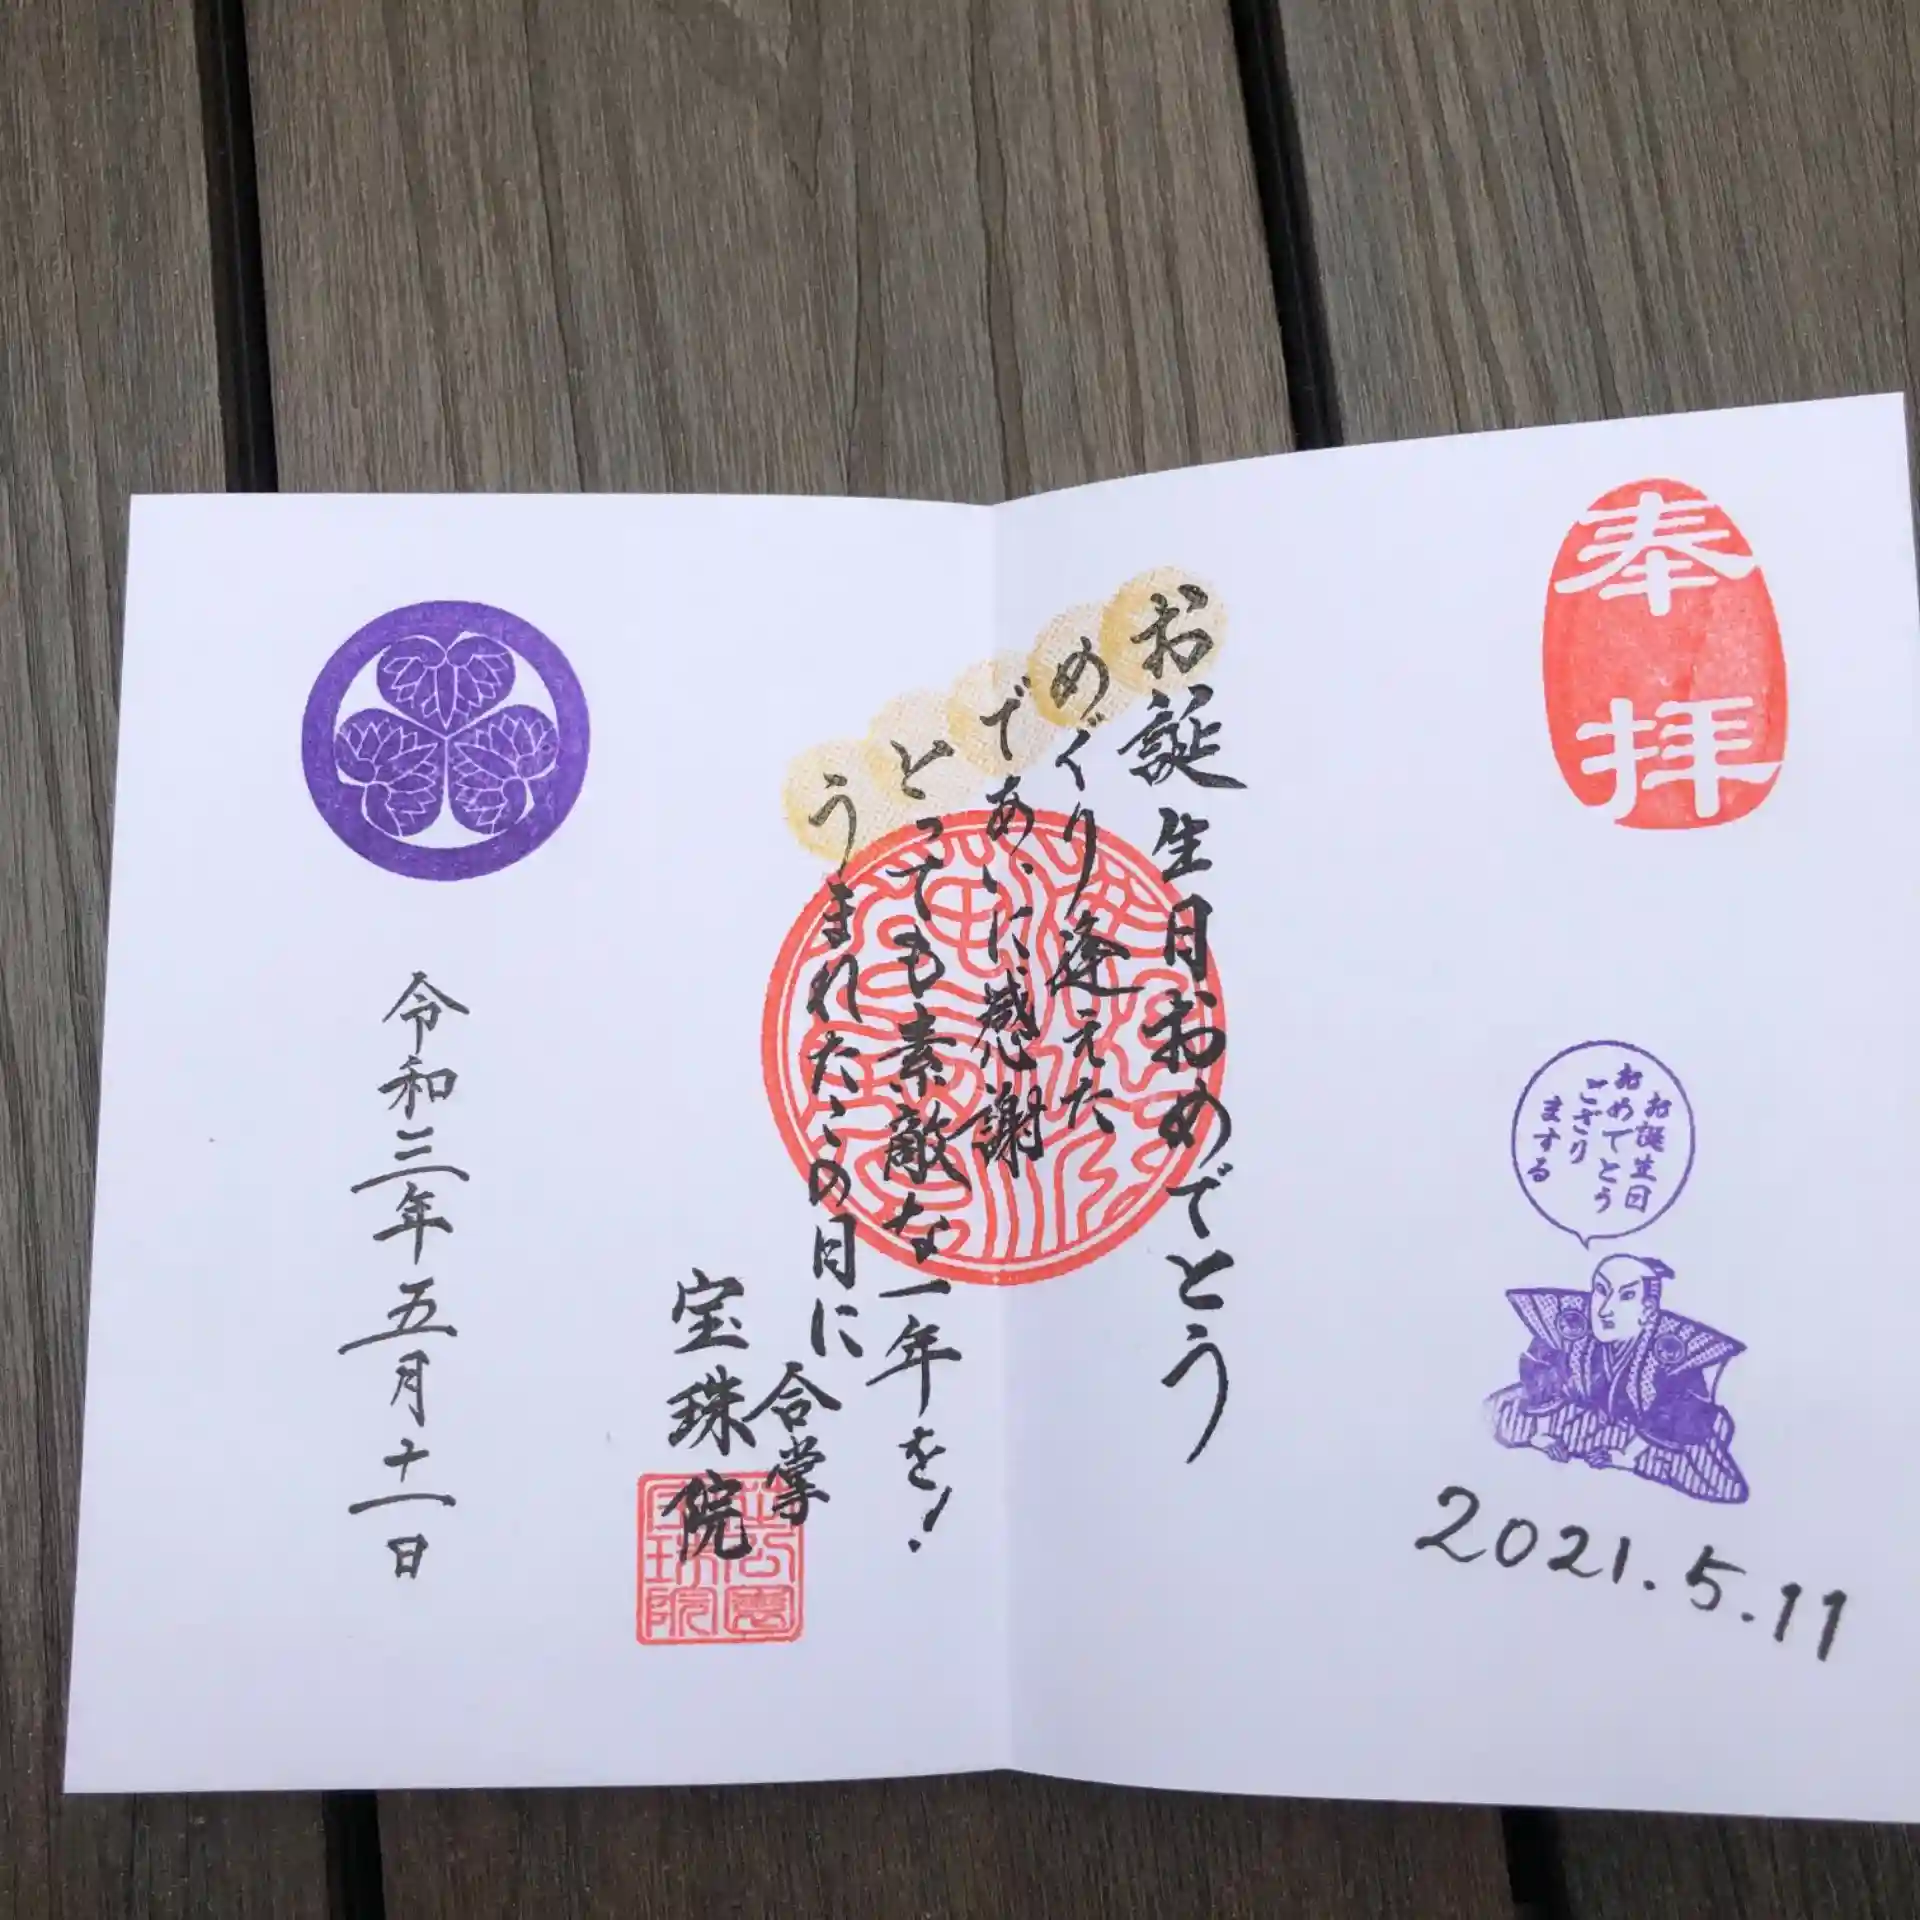 奉拝
お誕生日
おめでとう
ござり
まする
2021.5.11
お誕生日おめでとう
めぐり逢えた
であいに感謝
とっても素敵な一年を!
うまれたこの日に
合掌
宝珠院
令和三年五月十一日